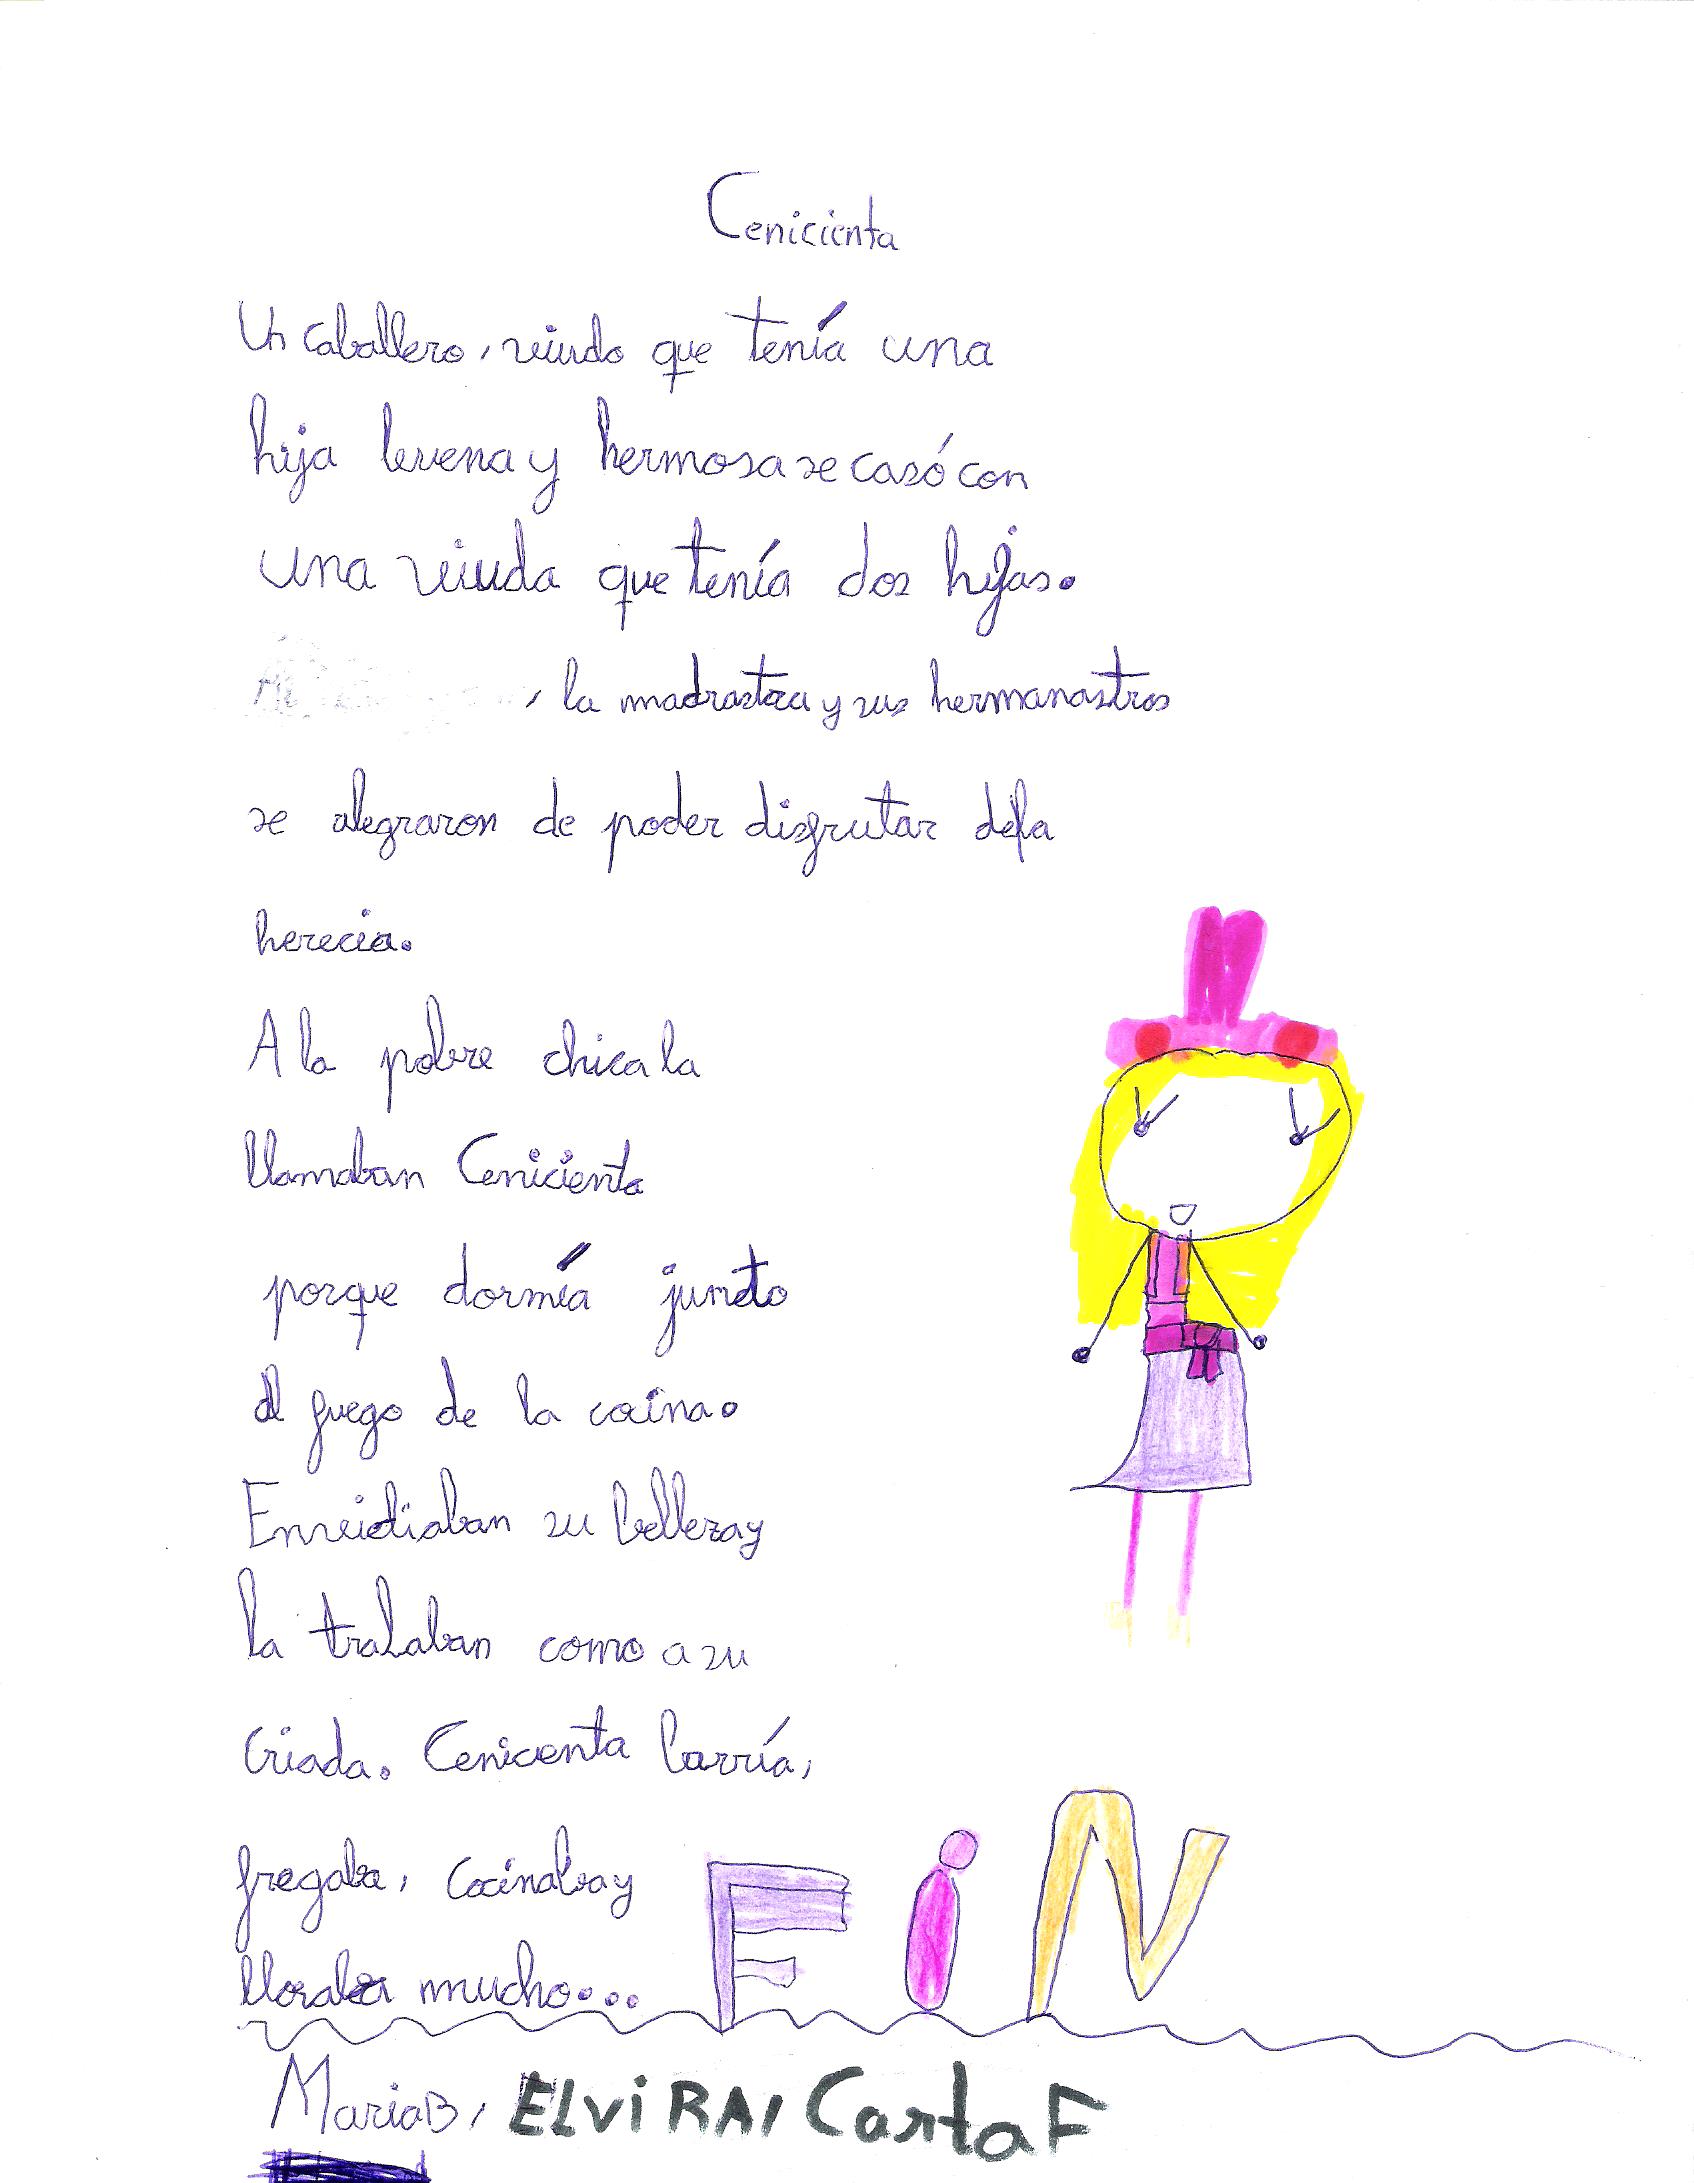 Cenicienta
Un caballero, viudo que tenía una
hija buena y hermosa se casó con
una viuda que tenía dos hijas.
, la madrastra y sus hermanastros
se alegraron de poder disfrutar de la
herecia.
A la pobre chica la
llamaban Cenicienta
porque dormía junto
al fuego de la cocina.
Envidiaban su belleza y
la trataban como a su
criada. Cenicenta barría,
fregaba, cocinaba y
lloraba mucho...
FiN
Maria B, ELViRA, Carta F